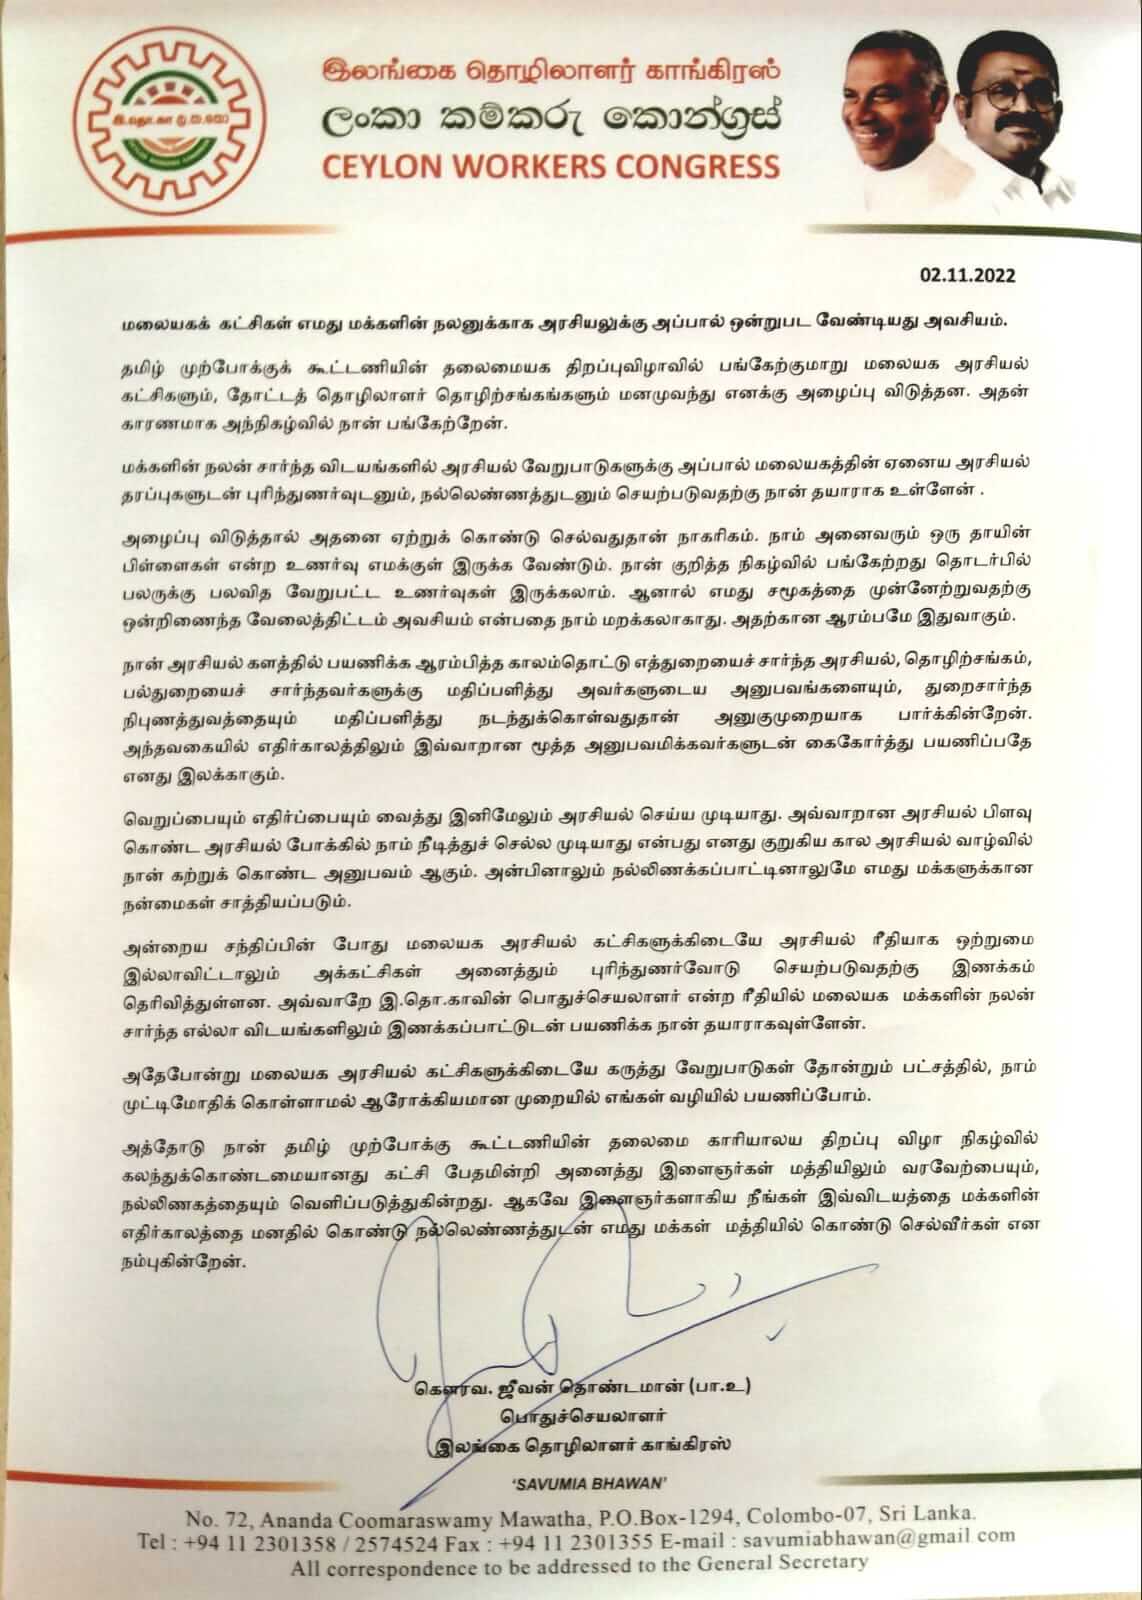 இலங்கை தொழிலாளர் காங்கிரஸ்
ලංකා කම්කරු කොන්ග්‍රස්
CEYLON WORKERS CONGRESS
02.11.2022
மலையகக் கட்சிகள் எமது மக்களின் நலனுக்காக அரசியலுக்கு அப்பால் ஒன்றுபட வேண்டியது அவசியம்.
தமிழ் முற்போக்குக் கூட்டணியின் தலைமையக திறப்புவிழாவில் பங்கேற்குமாறு மலையக அரசியல்
கட்சிகளும், தோட்டத் தொழிலாளர் தொழிற்சங்கங்களும் மனமுவந்து எனக்கு அழைப்பு விடுத்தன. அதன்
காரணமாக அந்நிகழ்வில் நான் பங்கேற்றேன்.
மக்களின் நலன் சார்ந்த விடயங்களில் அரசியல் வேறுபாடுகளுக்கு அப்பால் மலையகத்தின் ஏனைய அரசியல்
தரப்புகளுடன் புரிந்துணர்வுடனும், நல்லெண்ணத்துடனும் செயற்படுவதற்கு நான் தயாராக உள்ளேன் .
அழைப்பு விடுத்தால் அதனை ஏற்றுக் கொண்டு செல்வதுதான் நாகரிகம். நாம் அனைவரும் ஒரு தாயின்
பிள்ளைகள் என்ற உணர்வு எமக்குள் இருக்க வேண்டும். நான் குறித்த நிகழ்வில் பங்கேற்றது தொடர்பில்
பலருக்கு பலவித வேறுபட்ட உணர்வுகள் இருக்கலாம். ஆனால் எமது சமூகத்தை முன்னேற்றுவதற்கு
ஒன்றிணைந்த வேலைத்திட்டம் அவசியம் என்பதை நாம் மறக்கலாகாது. அதற்கான ஆரம்பமே இதுவாகும்.
நான் அரசியல் களத்தில் பயணிக்க ஆரம்பித்த காலம்தொட்டு எத்துறையைச் சார்ந்த அரசியல், தொழிற்சங்கம்,
பல்துறையைச் சார்ந்தவர்களுக்கு மதிப்பளித்து அவர்களுடைய அனுபவங்களையும், துறைசார்ந்த
நிபுணத்துவத்தையும் மதிப்பளித்து நடந்துக்கொள்வதுதான் அனுகுமுறையாக பார்க்கின்றேன்.
அந்தவகையில் எதிர்காலத்திலும் இவ்வாறான மூத்த அனுபவமிக்கவர்களுடன் கைகோர்த்து பயணிப்பதே
எனது இலக்காகும்.
வெறுப்பையும் எதிர்ப்பையும் வைத்து இனிமேலும் அரசியல் செய்ய முடியாது. அவ்வாறான அரசியல் பிளவு
கொண்ட அரசியல் போக்கில் நாம் நீடித்துச் செல்ல முடியாது என்பது எனது குறுகிய கால அரசியல் வாழ்வில்
நான் கற்றுக் கொண்ட அனுபவம் ஆகும். அன்பினாலும் நல்லிணக்கப்பாட்டினாலுமே எமது மக்களுக்கான
நன்மைகள் சாத்தியப்படும்.
அன்றைய சந்திப்பின் போது மலையக அரசியல் கட்சிகளுக்கிடையே அரசியல் ரீதியாக ஒற்றுமை
இல்லாவிட்டாலும் அக்கட்சிகள் அனைத்தும் புரிந்துணர்வோடு செயற்படுவதற்கு இணக்கம்
தெரிவித்துள்ளன. அவ்வாறே இ.தொ.காவின் பொதுச்செயலாளர் என்ற ரீதியில் மலையக மக்களின் நலன்
சார்ந்த எல்லா விடயங்களிலும் இணக்கப்பாட்டுடன் பயணிக்க நான் தயாராகவுள்ளேன்.
அதேபோன்று மலையக அரசியல் கட்சிகளுக்கிடையே கருத்து வேறுபாடுகள் தோன்றும் பட்சத்தில், நாம்
முட்டிமோதிக் கொள்ளாமல் ஆரோக்கியமான முறையில் எங்கள் வழியில் பயணிப்போம்.
அத்தோடு நான் தமிழ் முற்போக்கு கூட்டணியின் தலைமை காரியாலய திறப்பு விழா நிகழ்வில்
கலந்துக்கொண்டமையானது கட்சி பேதமின்றி அனைத்து இளைஞர்கள் மத்தியிலும் வரவேற்பையும்,
நல்லிணகத்தையும் வெளிப்படுத்துகின்றது. ஆகவே இளைஞர்களாகிய நீங்கள் இவ்விடயத்தை மக்களின்
எதிர்காலத்தை மனதில் கொண்டு நல்லெண்ணத்துடன் எமது மக்கள் மத்தியில் கொண்டு செல்வீர்கள் என
நம்புகின்றேன்.
கௌரவ. ஜீவன் தொண்டமான் (பா.உ)
பொதுச்செயலாளர்
இலங்கை தொழிலாளர் காங்கிரஸ்
'SAVUMIA BHAWAN'
No. 72, Ananda Coomaraswamy Mawatha, P.O.Box-1294, Colombo-07, Sri Lanka.
Tel : +94 11 2301358 / 2574524 Fax : +94 11 2301355 E-mail : savumiabhawan@gmail.com
All correspondence to be addressed to the General Secretary